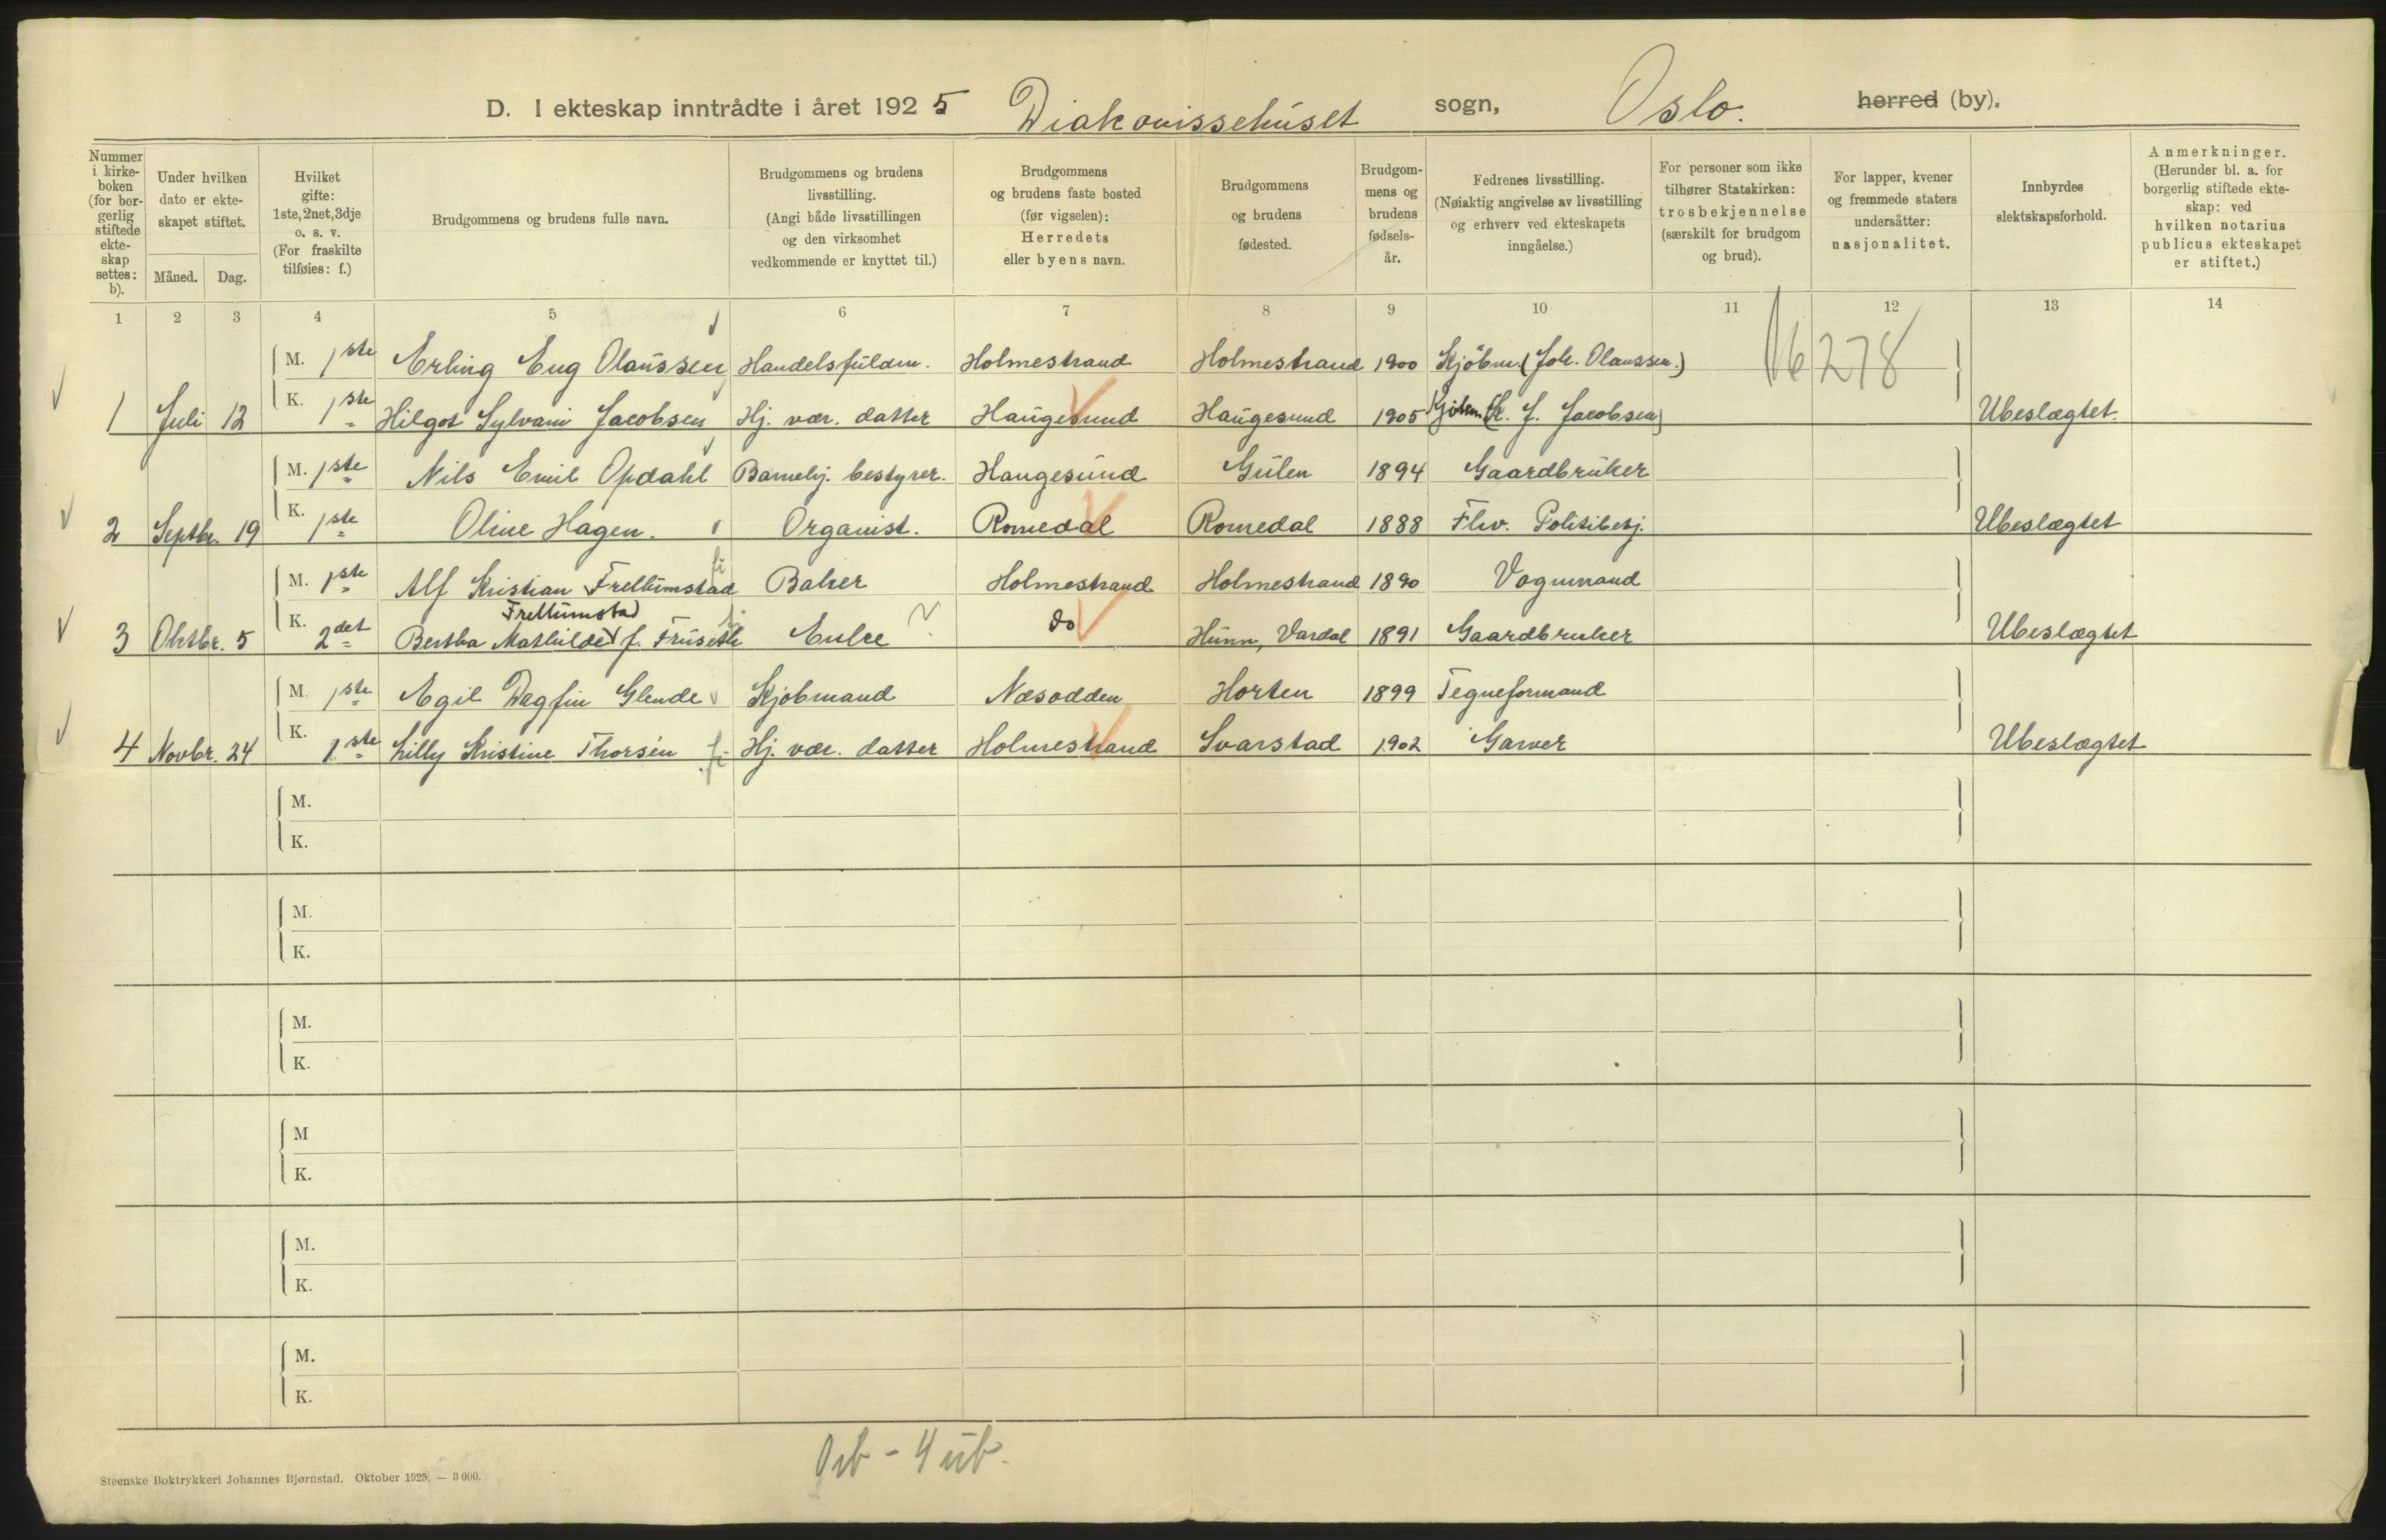 D. I ekteskap inntrådte i året 1925 Diakonissehuset sogn, Oslo. herred (by).
Nummer i kirke-boken (for bor-gerlig stiftede ekte-skap settes: b).
Under hvilken dato er ekte-skapet stiftet.
Måned. Dag.
Hvilket gifte: 1ste, 2net, 3dje o. s. v. (For fraskilte tilføies: f.)
Brudgommens og brudens fulle navn.
Brudgommens og brudens livsstilling. (Angi både livsstillingen og den virksomhet vedkommende er knyttet til.)
Brudgommens og brudens faste bosted (før vigselen): Herredets eller byens navn.
Brudgommens og brudens fødested.
Brudgom-mens og brudens fødsels-år.
Fedrenes livsstilling. (Nøiaktig angivelse av livsstilling og erhverv ved ekteskapets inngåelse.)
For personer som ikke tilhører Statskirken: trosbekjennelse (særskilt for brudgom og brud).
For lapper, kvener og fremmede staters undersåtter: nasjonalitet.
Innbyrdes slektskapsforhold.
Anmerkninger. (Herunder bl. a. for borgerlig stiftede ekte-skap: ved hvilken notarius publicus ekteskapet er stiftet.)
1 2 3 4 5 6 7 8 9 10 11 12 13 14
M. 1ste Erling Eug Olaussen Handelsfuldm. Holmestrand Holmestrand 1900 Kjøbm. (Joh. Olaussen.) 16278
1 Juli 12 K. 1ste Hilgot Sylvani Jacobsen Hj. vær. datter Haugesund Haugesund 1905 Kjøbm. (K. J. Jacobsen) Ubeslægtet.
M. 1ste Nils Emil Opdahl Barnehj. bestyrer. Haugesund Gulen 1894 Gaardbruker
2 Septbr. 19 K. 1ste Oline Hagen. Organist. Romedal Romedal 1888 Fhv. Politibetj. Ubeslægtet
M. 1ste Alf Kristian Frellumstad Baker Holmestrand Holmestrand 1890 Vognmand
Frellumstad
3 Oktbr. 5 K. 2det Bertha Mathilde f. Fruseth Enke ? do Hunn, Vardal 1891 Gaardbruker Ubeslægtet
M. 1ste Egil Dagfin Glende Kjøbmand Næsodden Horten 1899 Tegneformand
4 Novbr. 24 K. 1ste Lilly Kristine Thorsén Hj. vær. datter Holmestrand Svarstad 1902 Garver Ubeslægtet
M.
K.
M.
K.
M.
K.
M
K.
M.
K.
M.
K.
4 ub.
Steenske Boktrykkeri Johannes Bjørnstad. Oktober 1925. — 3 000.